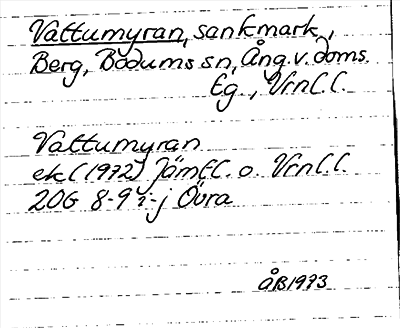 Vattumyran, sankmark,
Berg, Bodums sn, Ång. v. doms.
Eg., Vrnl.l.
Vattumyran
ek (1972) Jämtl. o. Vrnl.l.
20G 8-9 i-j Övra
ÅB 1973